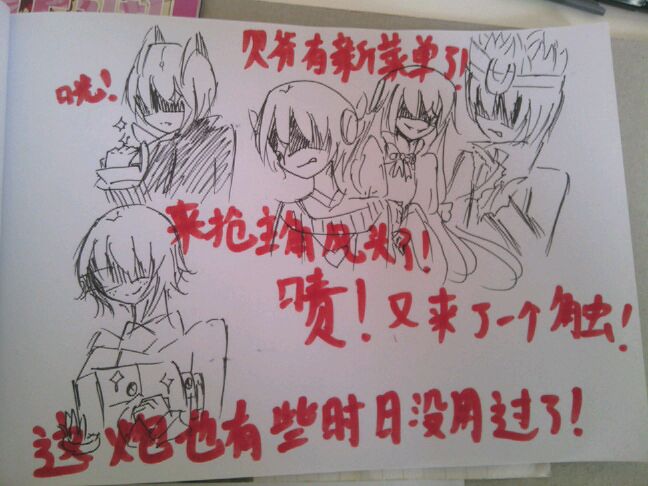 贝爷有新菜单了!
咣!
来抢主角风头了!
啧!又来了一个触!
这炮也有些时日没用过了!